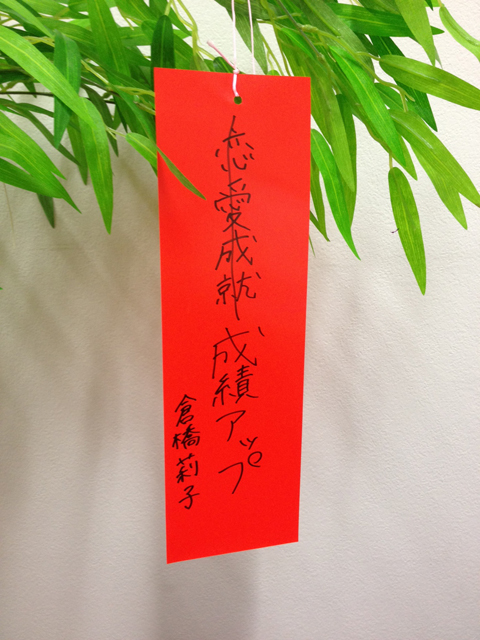 恋愛成就 成績アップ
倉橋莉子